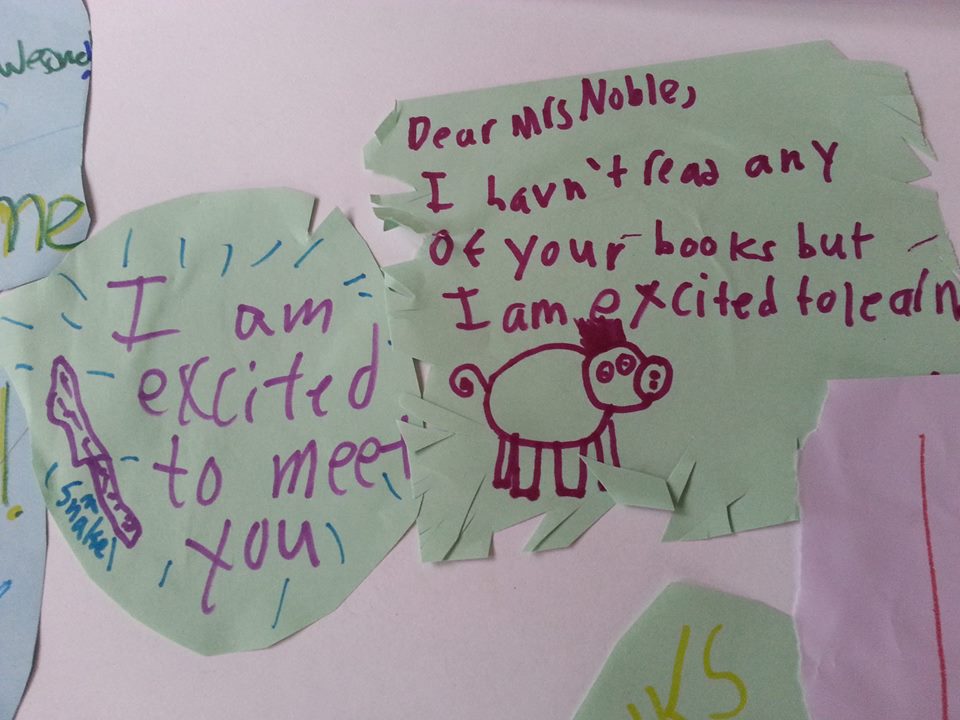 me
I am
excited
to meet
you
Snake!
Dear Mrs Noble,
I havn't read any
of your books but
I am excited to learn